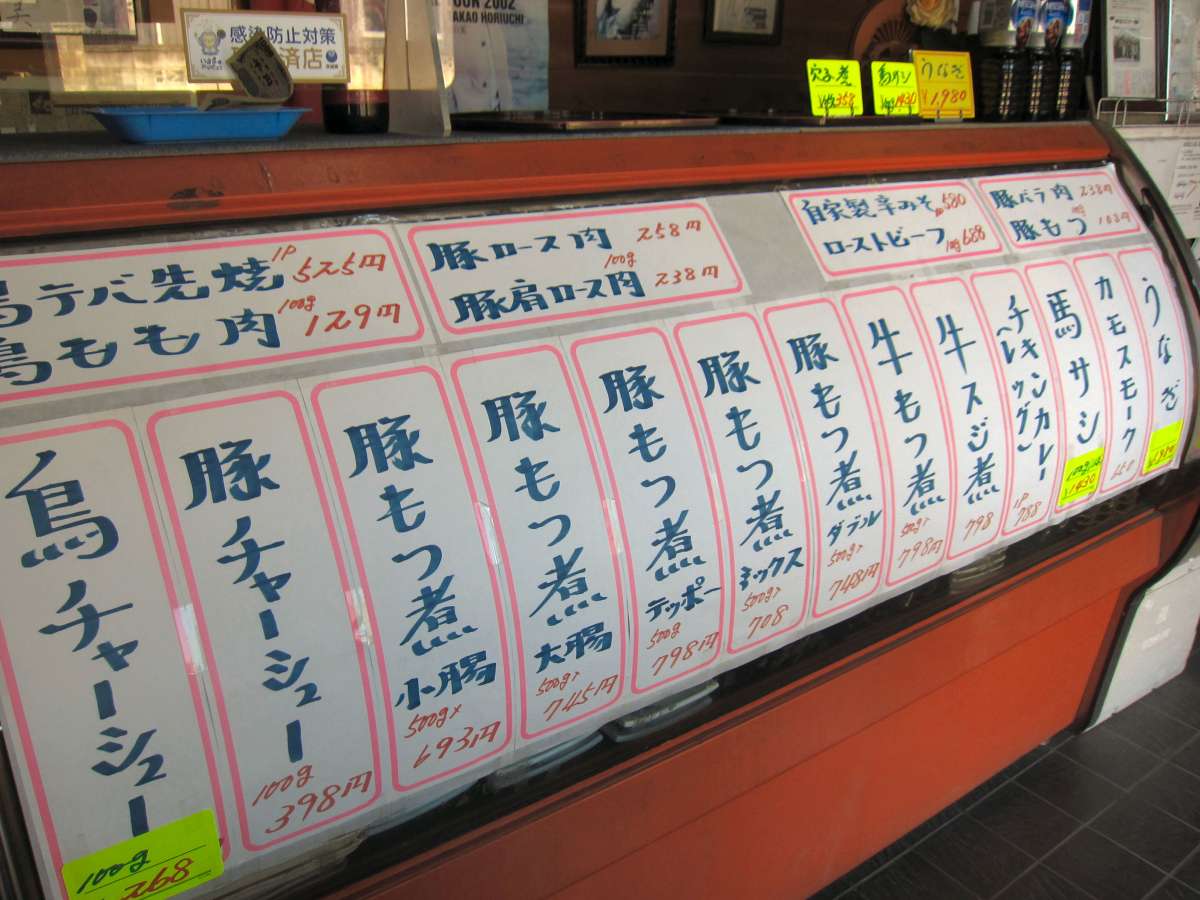 感染防止対策
済店
TOUR 2002
TAKAO HORIUCHI
穴子煮
¥358
馬サシ
¥1430
うなぎ
¥1,980
鳥テバ先焼 1P 525円
鳥もも肉 100g 129円
豚ロース肉 258円
100g
豚肩ロース肉 238円
自家製辛みそ 580
ローストビーフ 100g 688
豚バラ肉 238円
100g
豚もつ 103円
鳥チャーシュー
100g
268
豚チャーシュー
100g
398円
豚もつ煮
小腸
500g×
693円
豚もつ煮
大腸
500g×
745円
豚もつ煮
テッポー
500g
798円
豚もつ煮
ミックス
500g×
708
豚もつ煮
ダブル
500g×
748円
牛もつ煮
500g×
798円
牛スジ煮
798
チキンカレー
(レッグ)
1P
788
馬サシ
¥1430
カモスモーク
うなぎ